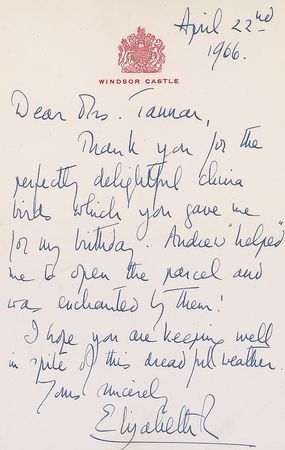 April 22nd
1966.
WINDSOR CASTLE
Dear Mrs. Tannar,
Thank you for the
perfectly delightful china
birds which you gave me
for my birthday. Andrew "helped"
me to open the parcel and
was enchanted by them!
I hope you are keeping well
in spite of this dreadful weather.
Yours sincerely
Elizabeth R